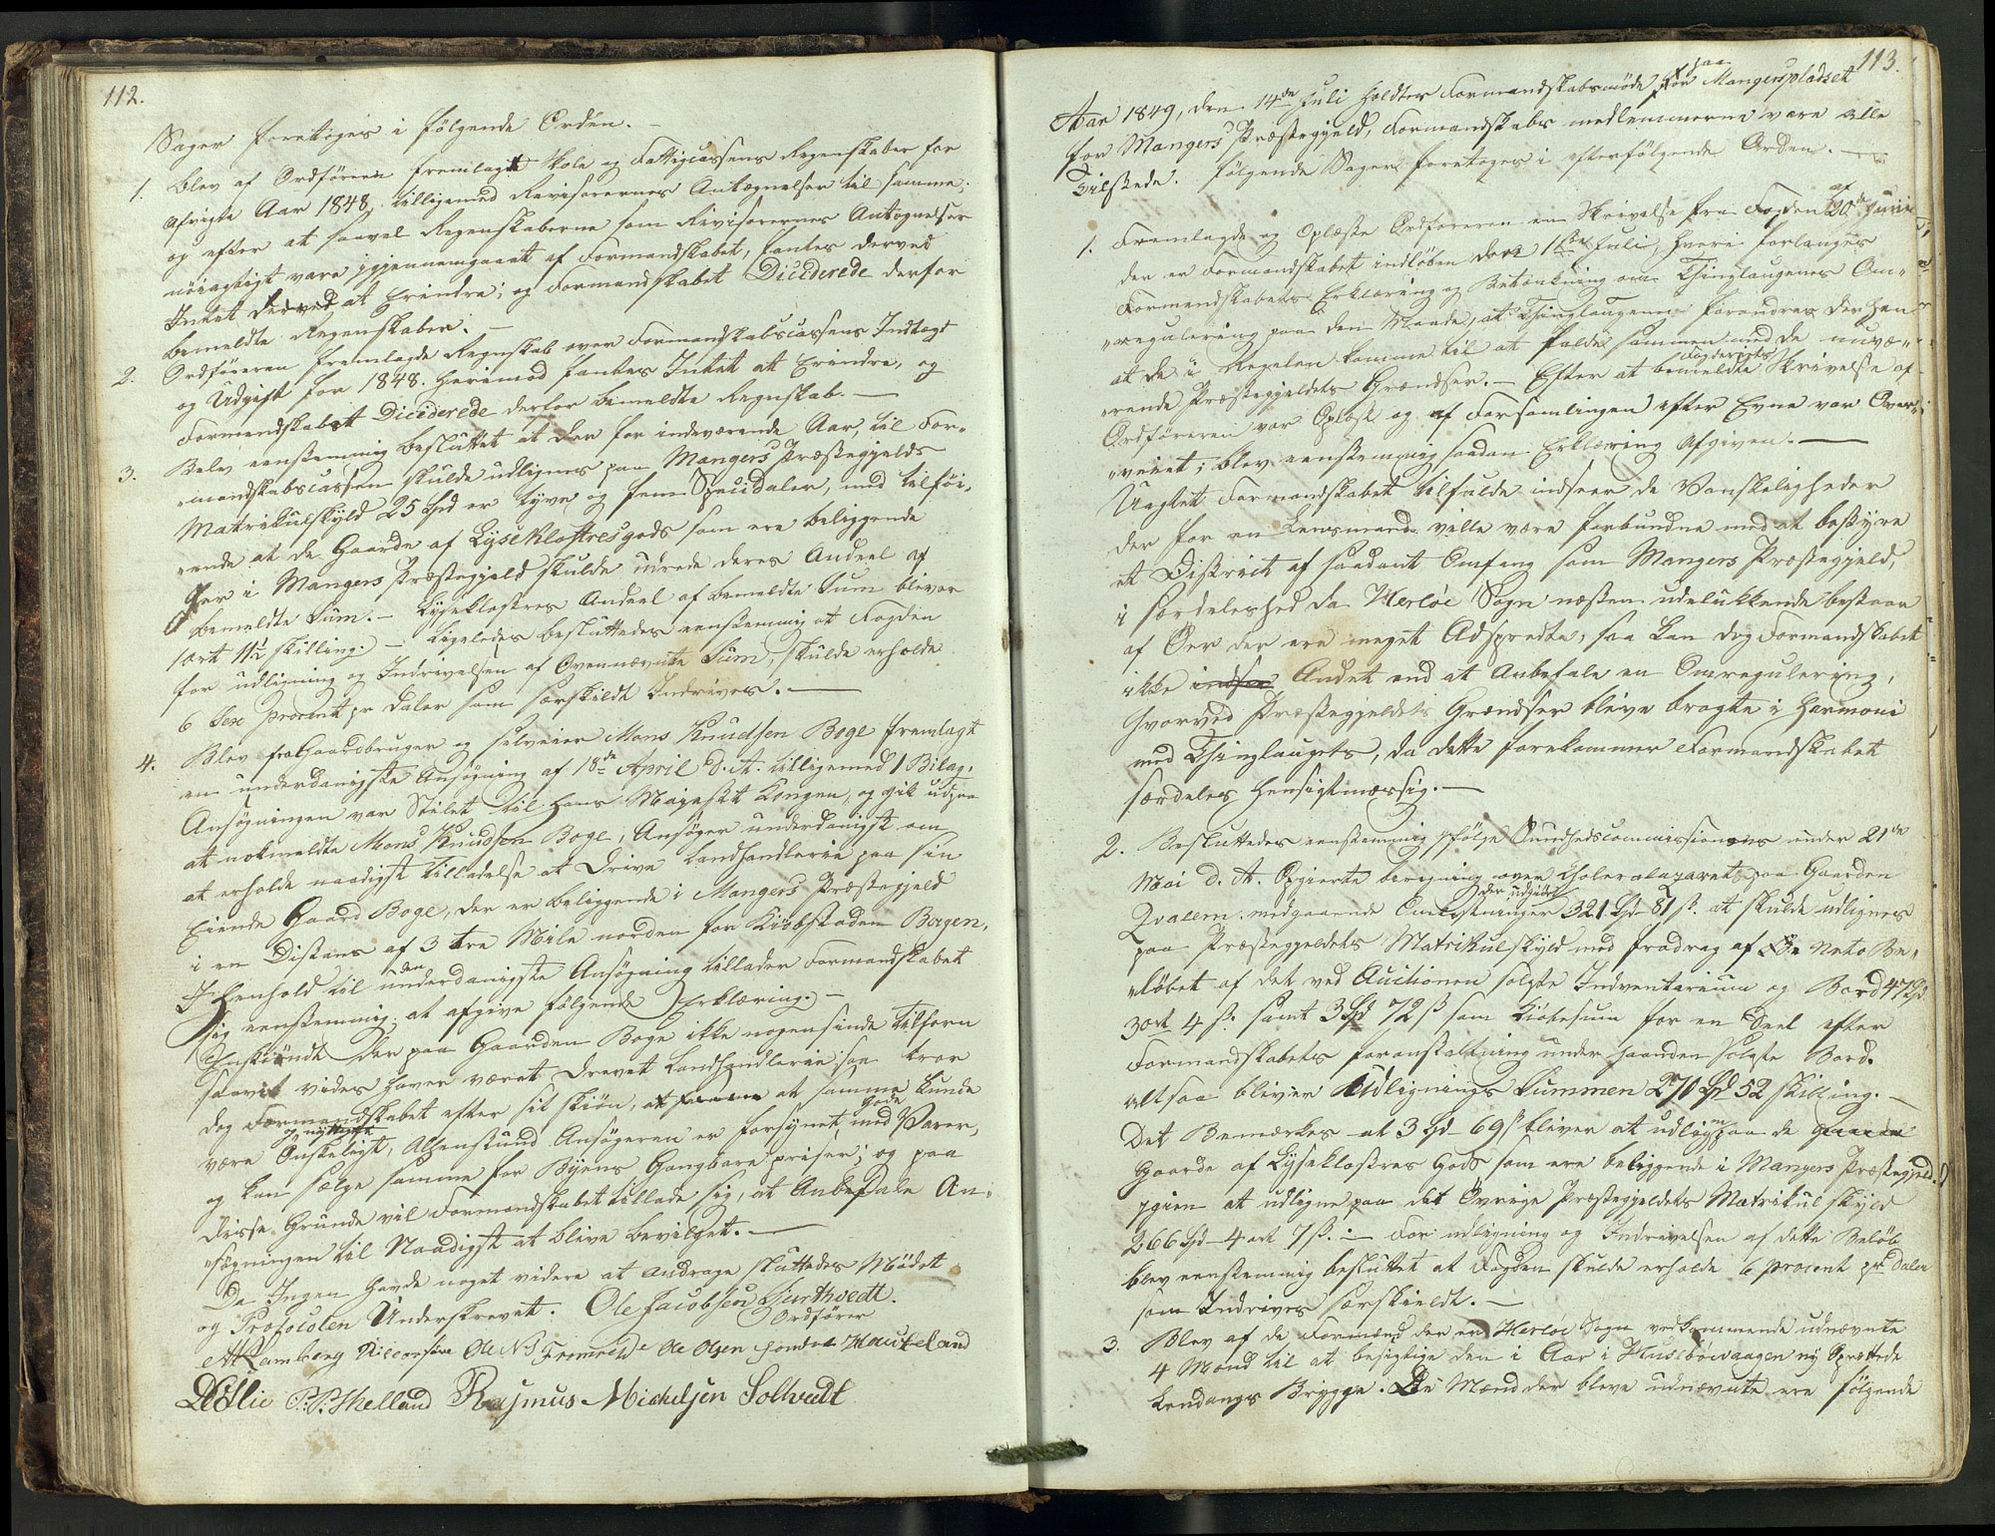 112.
Sager foretoges i følgende Orden. —
1. Blev af Ordføreren fremlagt Skole og Fattigcassens Regenskaber for
afvigte Aar 1848, tilligemed Revisorernes Antægnelser til samme;
og efter at saavel Regenskaberne som Revisorernes Antegnelser
nöiagtigt vare igjennemgaaet af Formandskabet, fantes derved
Intet derved at Erindre; og Formandskabet Diciderede derfor
bemeldte Regenskaber. —
2. Ordføreren fremlagde Regnskab over Formandskabscassens Indtægt
og Udgift for 1848. Herimod fantes Intet at Erindre, og
Formandskabet Diciderede derfor bemeldte Regnskab. —
3. Belev eenstemmig besluttet at der for indeværende Aar, til For-
mandskabscassen skulde udlignes paa Mangers Præstegjelds
Matrikulskyld 25 Spd er tyve og fem Speciedaler, med tilföi-
ende at de Gaarde af Lyseklostresgods som ere beliggende
her i Mangers Præstegjeld skulde udrede deres Andeel af
bemeldte Sum. — Lyseklostres Andeel af bemeldte Sum bliver
1 ort 11½ skilling. — Ligeledes besluttedes eenstemmig at Fogden
for udligning og Indrivelsen af Ovennævnte Sum, skulde erholde
6 sex procent pr Daler som særskildt Indrives. —
4. Blev fra Gaardbruger og selveier Mons Knudsen Boge fremlagt
en underdanigste Ansøgning af 18de April d. A. tilligemed 1 Bilag.
Ansøgningen var Stilet til Hans Majestæt Kongen, og gik ud paa
at nokmeldte Mons Knudsen Boge, Ansøger underdanigst om
at erholde naadigst tilladelse at Drive Landhandlerie paa sin
Eiende Gaard Boge, der er beliggende i Mangers Præstegjeld
i en Distans af 3 tre Mile norden for Kiøbstaden Bergen.
I Henhold til den underdanigste Ansøgning tillader Formandskabet
sig eenstemmig at afgive følgende Erklæring. —
Enskiöndt der paa Gaarden Boge ikke nogensinde tilforn
saavit vides haver været Drevet Landhandlerie saa tror
dog Formandskabet efter sit skiön, at samme at samme kunde
være Önskeligt, og nyttigt Alhenstund Ansøgeren er forsynet med gode Varer,
og kan sælge samme for Byens Gangbare priser; og paa
disse Grunde vil Formandskabet tillade sig, at Anbefale An-
søgningen til Naadigst at blive bevilget. —
Da Ingen havde noget videre at andrage sluttedes Mödet
og Protocolen Underskrevet. Ole Jacobsen Hiorthvedt.
Ordfører
A Ramberg Ole N: Fromreide Ole Olsen Hauteland
P. P. Skelland Rasmus Michelsen Solhvedt
113.
Aar 1849, den 14de Juli holdtes Formandskabsmøde for paa Mangerspladset
for Mangers Præstegjeld, Formandskabs medlemmerne vare alle
tilstede. følgende Sager foretoges i efterfølgende Orden. —
1. Fremlagde og Oplæste Ordføreren en Skrivelse fra Fogden af 20de Junii
der er Formandskabet indløben den 1ste Juli, hvori forlanges
Formandskabets Erklæring og Betænkning om Thinglaugenes Om-
regulering paa den Maade, at Thinglaugene forandres derhen
at de i Regelen komme til at falde sammen med de nuvæ-
rende Præstegjeldets Grændser. — Efter at bemeldte Fogderiets Skrivelse af
Ordføreren var Oplæst og af Forsamlingen efter Evne var Over-
veiet; blev eenstemmig saadan Erklæring Afgiven. —
Uagtet Formandskabet tilfulde indseer de Vanskeligheder
der for en Lensmand ville være forbundne med at bestyre
et District af saadant Omfang som Mangers Præstegjeld,
i særdeleshed da Herlöe Sogn næsten udelukkende bestaar
af Øer der ere meget Adspredte, saa kan dog Formandskabet
ikke indsee Andet end at Anbefale en Omregulering,
hvorved Præstegjeldets Grændser blive bragte i Harmoni
med Thinglaugets, da dette forekommer Formandskabet
særdeles Hensigtmæssig. —
2. Besluttedes eenstemmig ifølge Sundhedscommissionens under 21de
Mai d. A. Opgivete beregning over Choleralazaret paa Gaarden
Qvalem medgaaende Omkostninger der udgiør 321 Spd 81 ß. at skulde udlignes
paa Præstegjeldets Matrikulskyld med fradrag af Ee Neto Be-
løbet af det ved Auctionen solgte Indventarium og Bord 47 Spd
3 ort 4 ß. samt 3 Spd 72 ß som Kiöbesum for en Seel efter
Formandskabets foranstaltning under haanden solgte Bord.
altsaa bliver Udlignings Summen 270 Spd 52 skilling. —
Det Bemærkes at 3 Spd 69 ß bliver at udligne paa de Gaarde
Gaarde af Lyseklostres Gods som ere beliggende i Mangers Præstegjeld.
igien at udligne paa det Øvrige Præstegjeldets Matrikulskyld
266 Spd 4 ort 7 ß. — For udligning og Indrivelsen af dette Beløb
blev eenstemmig besluttet at Fogden skulde erholde 6 procent pr Daler
som Indrives særskieldt. —
3. Blev af de Formænd der er Herlöe Sogn vedkommende udnævnte
4 Mænd til at besigtige den i Aar i Husebövaagen ny
Lendangs Brygge. De Mænd der bleve udnævnte ere følgende